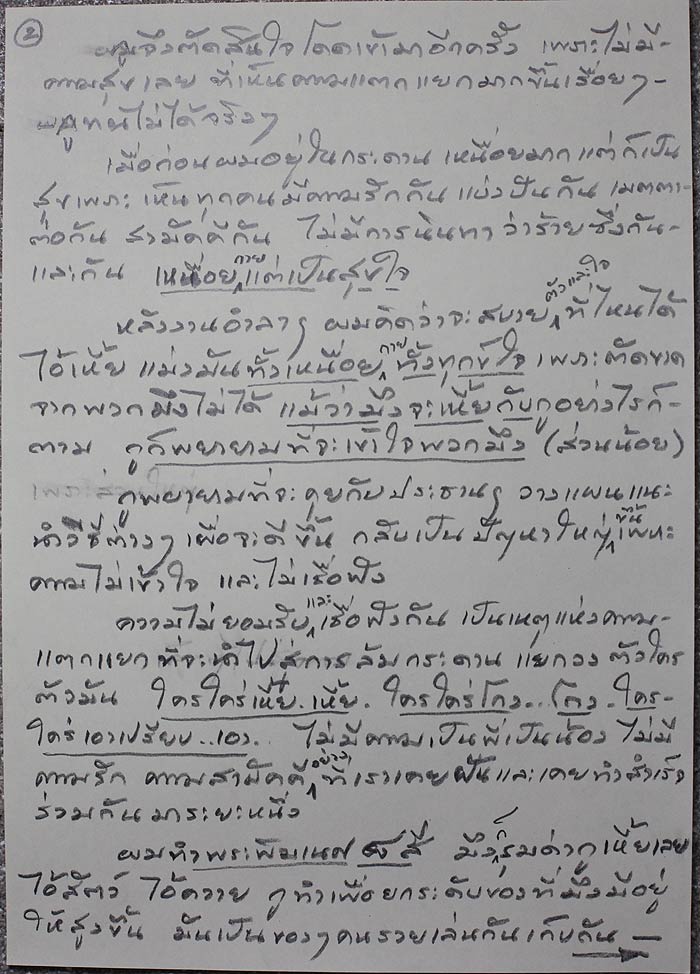 ②
ผมจึงตัดสินใจโดดเข้ามาอีกครั้ง เพราะไม่มี-
ความสุขเลย ที่เห็นความแตกแยกมากขึ้นเรื่อยๆ-
ผมทนไม่ได้จริงๆ
เมื่อก่อนผมอยู่ในกระดาน เหนื่อยมาก แต่ก็เป็น
สุขเพราะเห็นทุกคนมีความรักกัน แบ่งปันกัน เมตตา-
ต่อกัน สามัคคีกัน ไม่มีการนินทาว่าร้ายซึ่งกัน-
และกัน เหนื่อยกายแต่เป็นสุขใจ
หลังงานอำลาๆ ผมคิดว่าจะสบายตัวและใจ ที่ไหนได้
ไอ้เหี้ย แม่งมันทั้งเหนื่อยกาย ทั้งทุกข์ใจ เพราะตัดขาด
จากพวกมึงไม่ได้ แม้ว่ามึงจะเหี้ยกับกูอย่างไรก็-
ตาม กูก็พยายามที่จะเข้าใจพวกมึง (ส่วนน้อย)
กูพยายามที่จะคุยกับประธานๆ วางแผนแนะ
นำวิธีต่างๆ เผื่อจะดีขึ้น กลับเป็นปัญหาใหญ่ขึ้นเพราะ
ความไม่เข้าใจ และไม่เชื่อฟัง
ความไม่ยอมรับและเชื่อฟังกัน เป็นเหตุแห่งความ-
แตกแยก ที่จะนำไปสู่การล้มกระดาน แยกวง ตัวใคร
ตัวมัน ใครใคร่เหี้ย..เหี้ย. ใครใคร่โกง...โกง. ใคร-
ใคร่เอาเปรียบ..เอา.. ไม่มีความเป็นพี่เป็นน้อง ไม่มี
ความรัก ความสามัคคีอย่างที่เราเคยฝันและเคยทำสำเร็จ
ร่วมกันมาระยะหนึ่ง
ผมทำพระพิฆเนศ สี มึงก็รุมด่ากู เหี้ยเลย
ไอ้สัตว์ ไอ้ควาย กูทำเพื่อยกระดับของที่มึงมีอยู่
ให้สูงขึ้น มันเป็นของๆคนรวยเล่นกันเก็บกัน